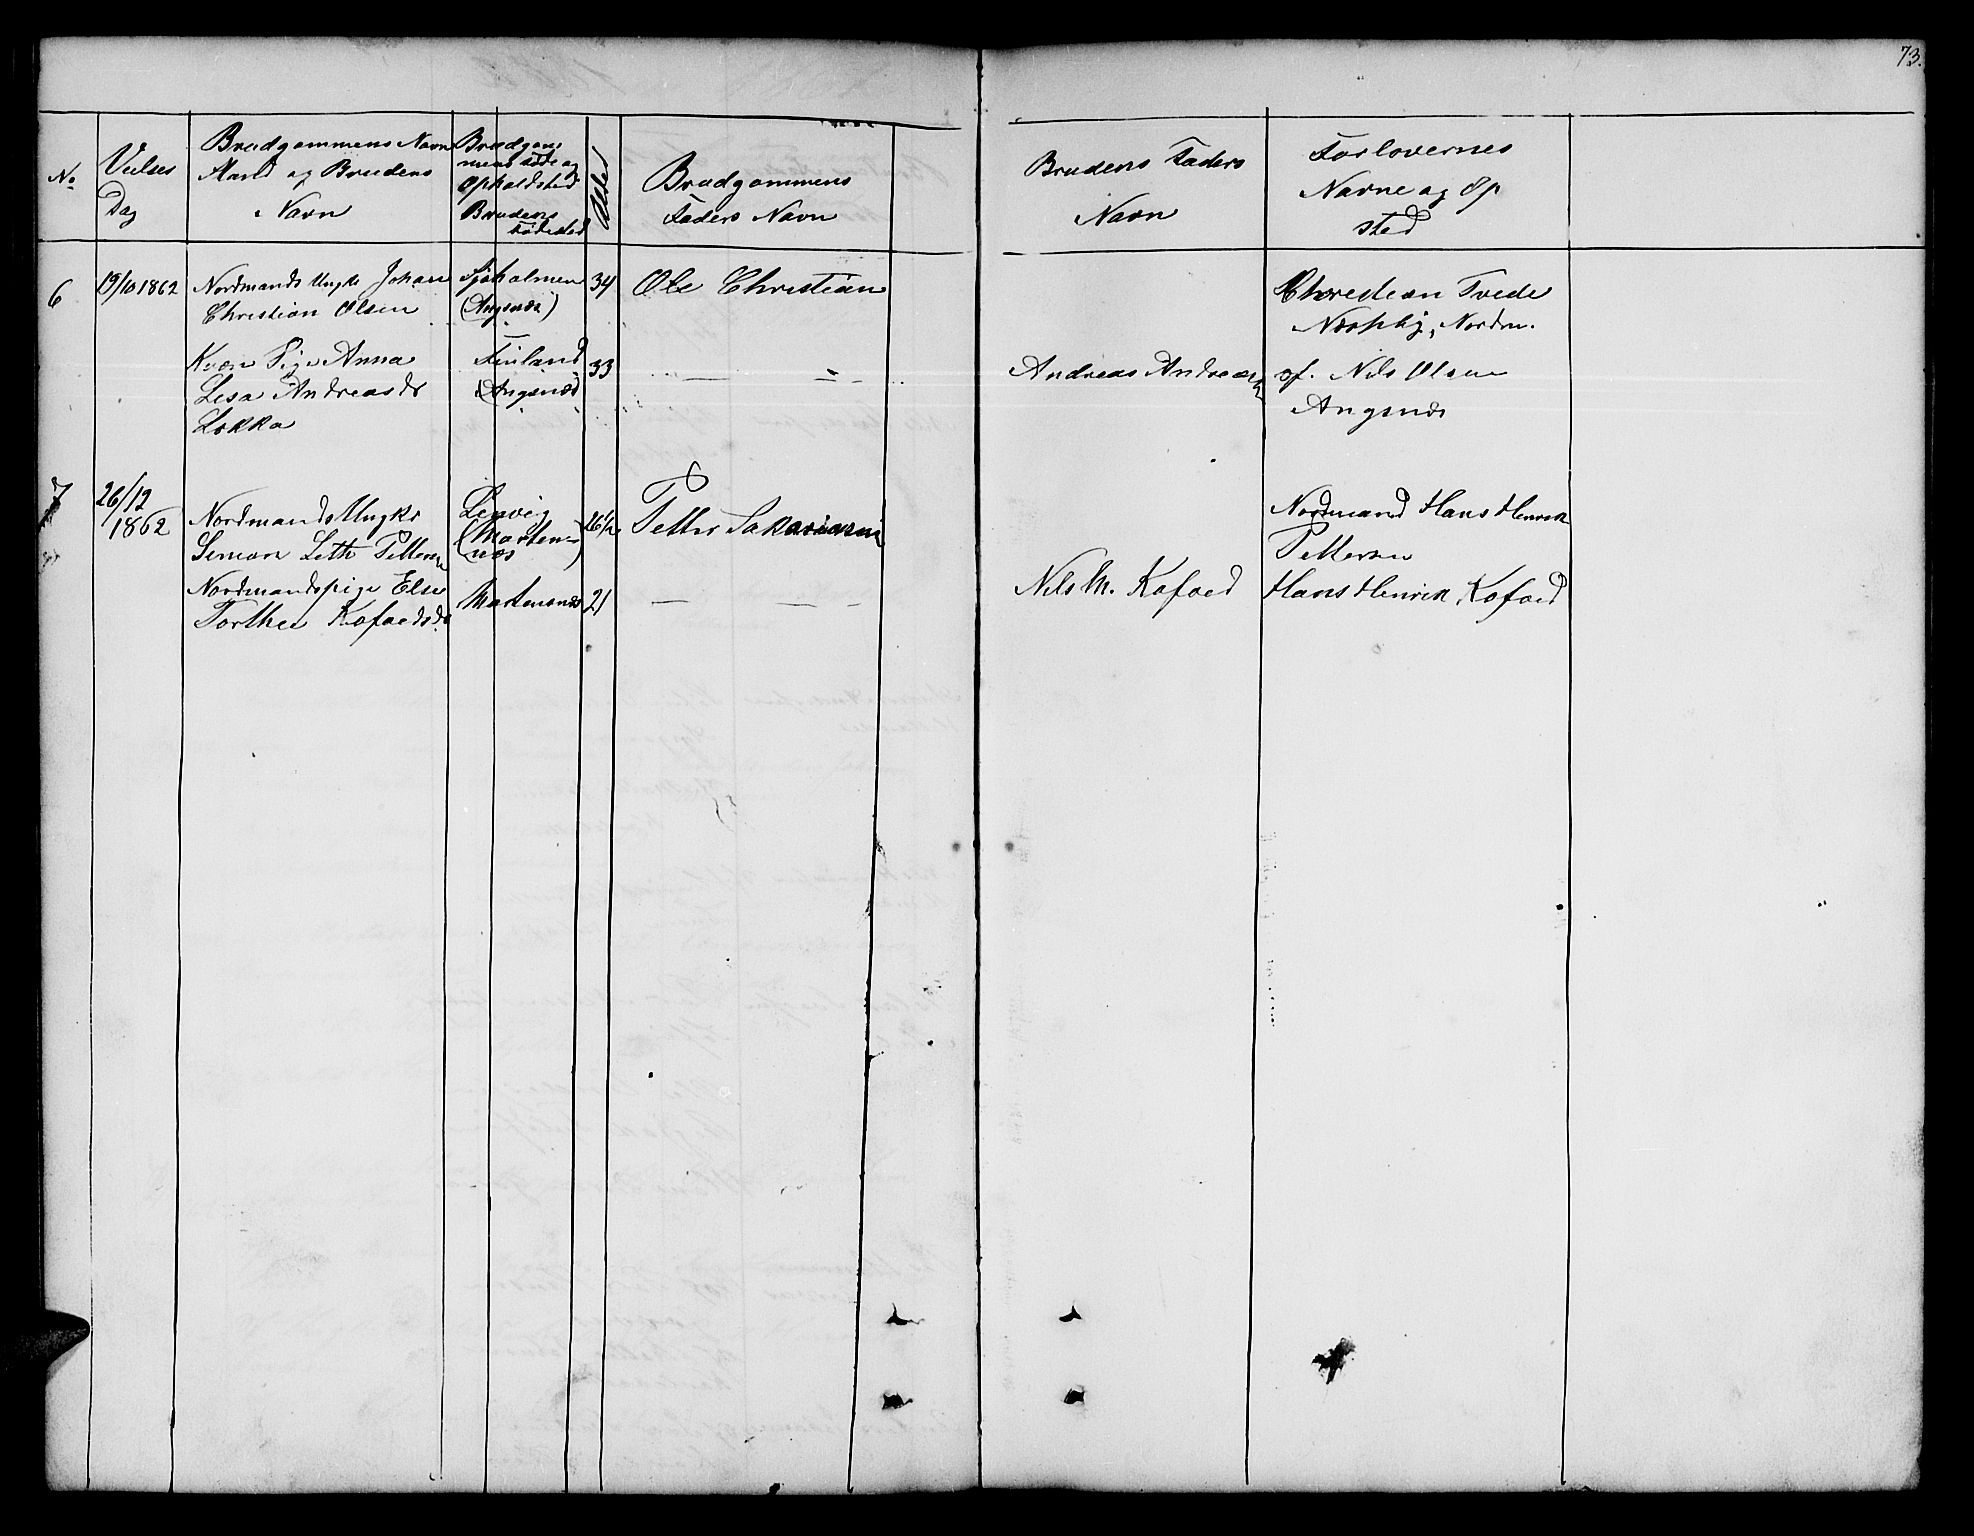 73.
No
Vielses
Dag
Brudgommens Navn
Stand og Brudens
Navn
Brudgom
mens Føde og
Opholdsted
Brudens
Fødested
Alder
Brudgommens
Faders Navn
Brudens Faders
Navn
Forlovernes
Navne og Op
sted
6
19/10 1862
Nordmands Ungkr Johan
Christian Olsen
(Angsnæs)
34
Ole Christian
Christian Tvede
Næsseby, Nordm.
Kvæn Pige Anna
Lisa Andreasdr
Lokka
Finland
(Angsnæs)
33
Andreas Andreas
sf. Nils Olsen
Angsnæs
7
26/12
1862
Nordmands Ungkr
Simon Leth Pettersen
Lenvig
(Morten-
næs)
26 1/2
Petter Sakariasen
Nordmand Hans Henrik
Pettersen
Nordmandspige Else
Torthea Kofoedsdr
Mortensnæs
21
Nils M. Kofoed
Hans Henrik Kofoed